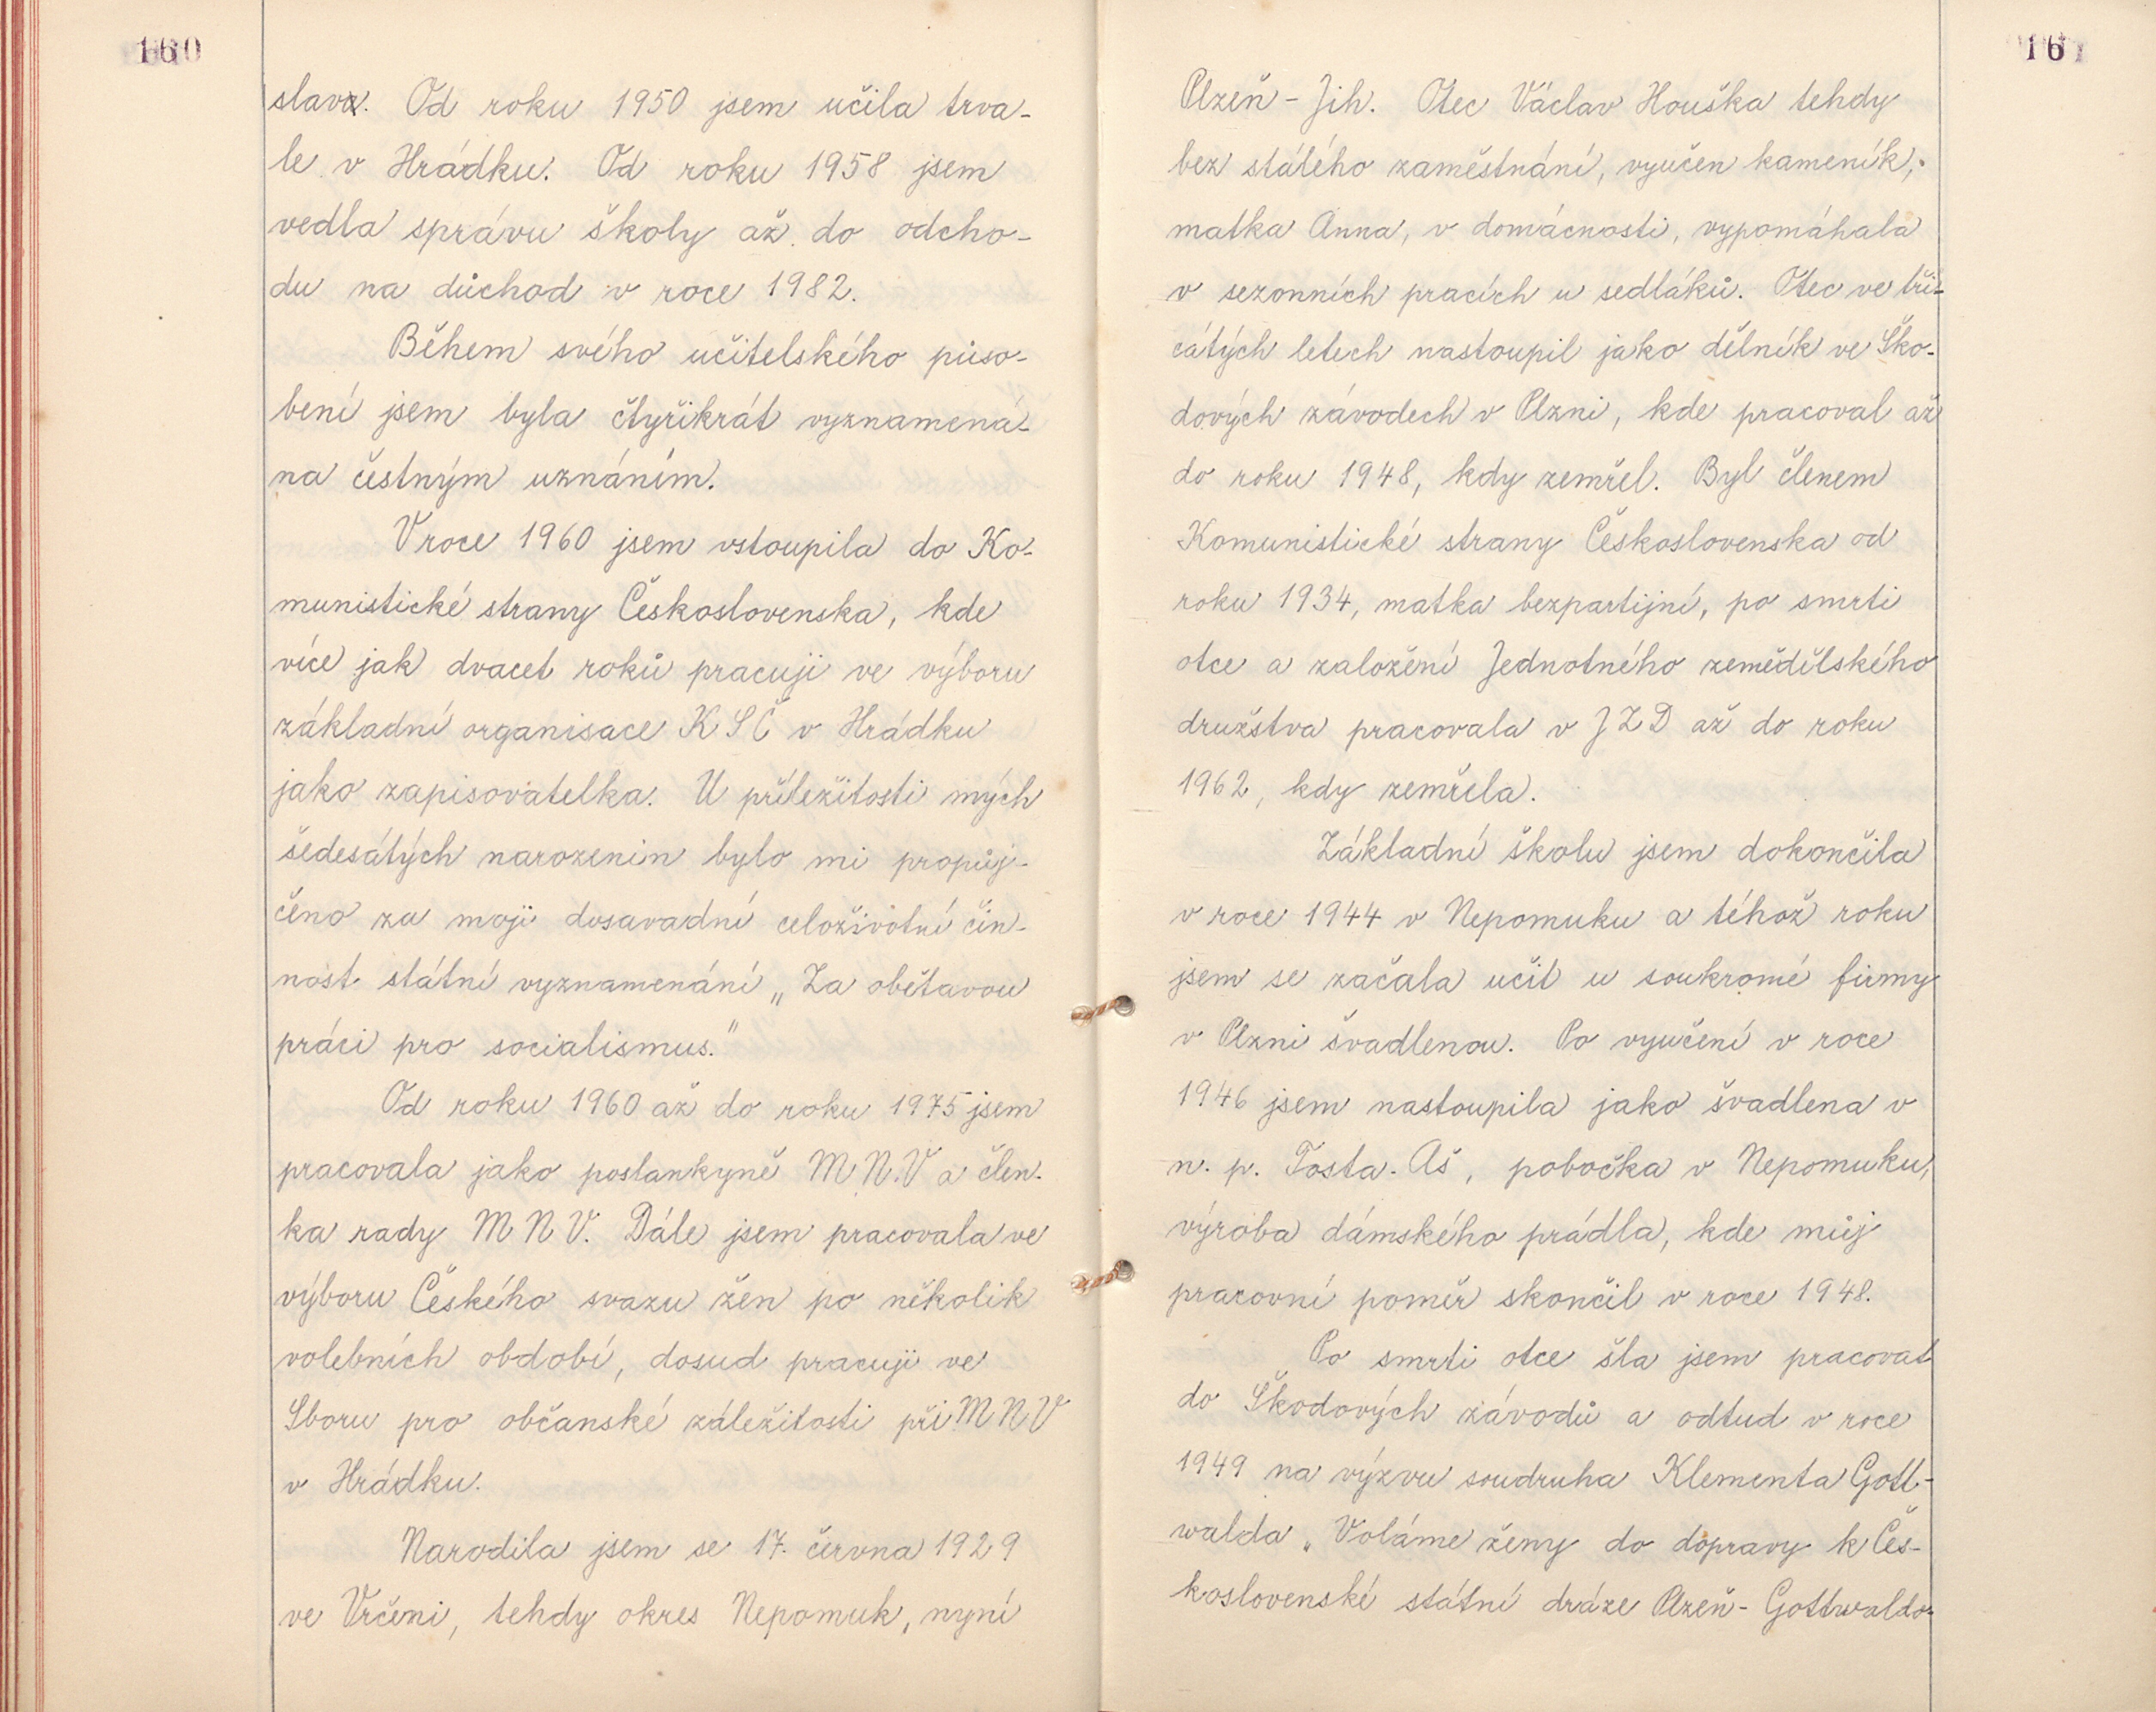 160
slava. Od roku 1950 jsem učila trva-
le v Hrádku. Od roku 1958 jsem
vedla správu školy až do odcho-
du na důchod v roce 1982.
Během svého učitelského půso-
bení jsem byla čtyřikrát vyznamená-
na čestným uznáním.
V roce 1960 jsem vstoupila do Ko-
munistické strany Československa, kde
více jak dvacet roků pracuji ve výboru
základní organisace KSČ v Hrádku
jako zapisovatelka. U příležitosti mých
šedesátých narozenin bylo mi propůj-
čeno za moji dosavadní celoživotní čin-
nost státní vyznamenání „Za obětavou
práci pro socialismus."
Od roku 1960 až do roku 1975 jsem
pracovala jako poslankyně M.N.V a člen-
ka rady MNV. Dále jsem pracovala ve
výboru Českého svazu žen po několik
volebních období, dosud pracuji ve
Sboru pro občanské záležitosti při MNV
v Hrádku.
Narodila jsem se 17. června 1929
ve Vrčeni, tehdy okres Nepomuk, nyní
161
Plzeň - Jih. Otec Václav Houška tehdy
bez stálého zaměstnání, vyučen kameník,
matka Anna, v domácnosti, vypomáhala
v sezonních pracích u sedláků. Otec ve tři-
cátých letech nastoupil jako dělník ve Ško-
dových závodech v Plzni, kde pracoval až
do roku 1948, kdy zemřel. Byl členem
Komunistické strany Československa od
roku 1934, matka bezpartijní, po smrti
otce a založení Jednotného zemědělského
družstva pracovala v JZD až do roku
1962, kdy zemřela.
Základní školu jsem dokončila
v roce 1944 v Nepomuku a téhož roku
jsem se začala učit u soukromé firmy
v Plzni švadlenou. Po vyučení v roce
1946 jsem nastoupila jako švadlena v
n. p. Tosta. Aš, pobočka v Nepomuku,
výroba dámského prádla, kde můj
pracovní poměr skončil v roce 1948.
Po smrti otce šla jsem pracovat
do Škodových závodů a odtud v roce
1949 na výzvu soudruha Klementa Gott-
walda „Voláme ženy do dopravy k Čes-
koslovenské státní dráze Plzeň - Gottwaldo-